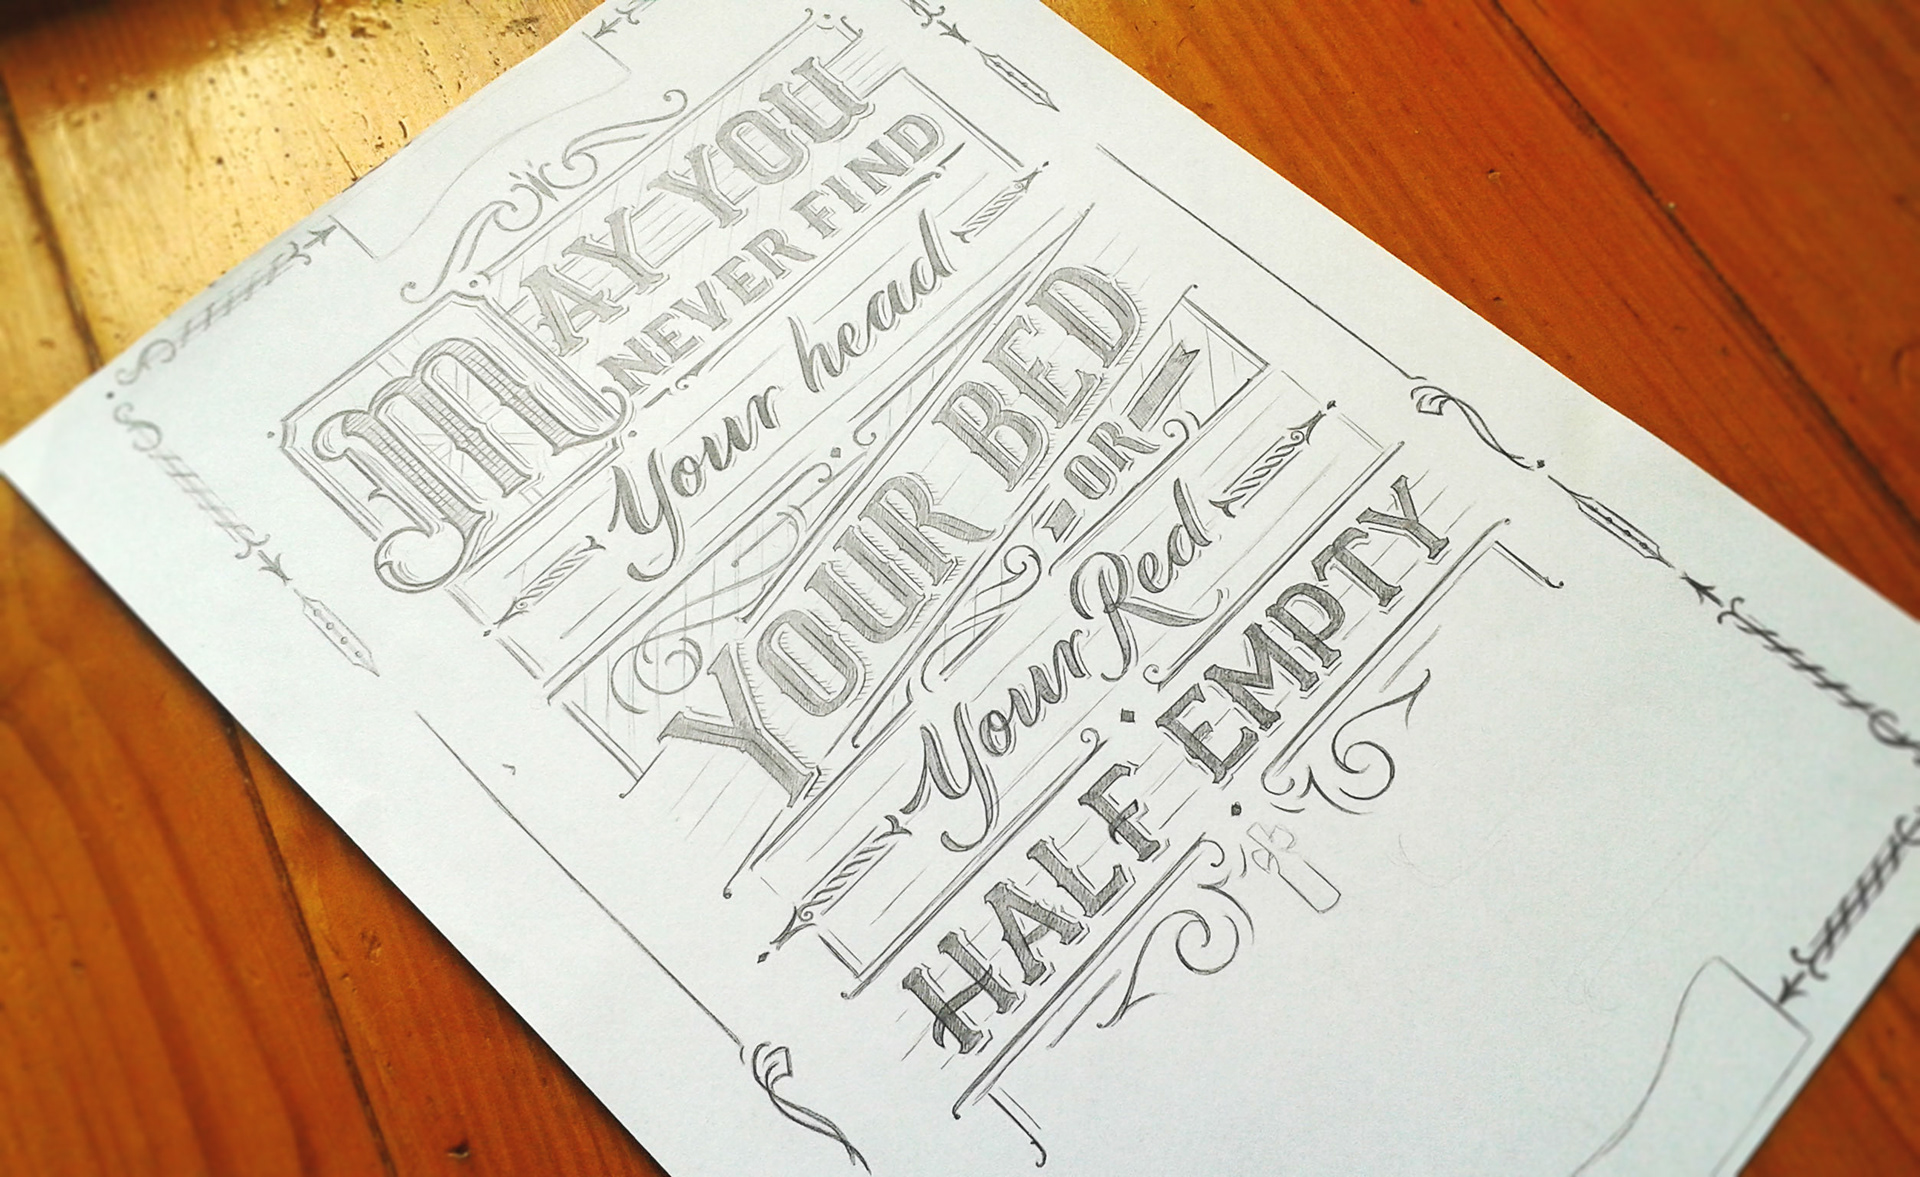 MAY YOU
NEVER FIND
Your head
YOUR BED
OR
Your Red
HALF EMPTY